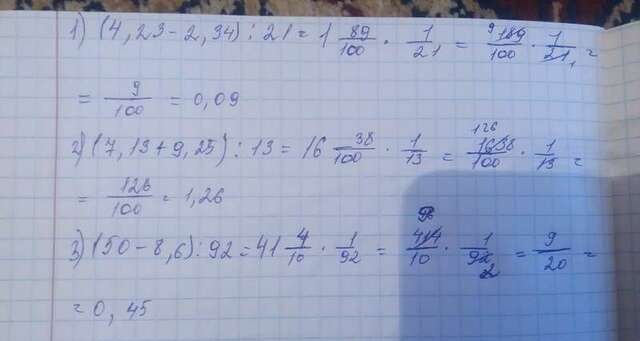 1) (4,23-2,34) : 21 = 1 89/100 · 1/21 = 9 189/100 · 1/21 1 =
= 9/100 = 0,09
2) (7,13+9,25) : 13 = 16 38/100 · 1/13 = 126 1638/100 · 1/13 =
= 126/100 = 1,26
3) (50-8,6) : 92 = 41 4/10 · 1/92 = 414/10 · 1/92 2 = 9/20 =
= 0,45